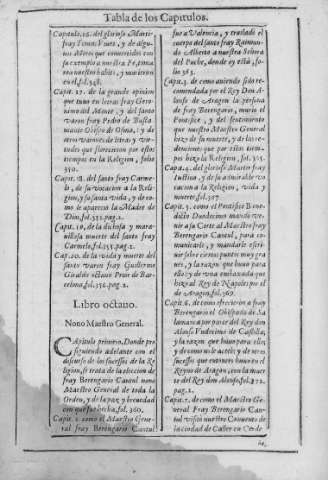 Tabla de los Capitulos.
Capitulo.16. del glorioso Martir
fray Tomas Vives, y de algu-
nos Moros que convertidos con
su exemplo a nuestra Fe, toma
ron nuestro habito, y murieron
en el, fol.348.
Capit. 17. de la grande opinion
que tuvo en letras fray Gero
nimo del Monte, y del santo
varon fray Pedro de Busta
mante Obispo de Osma, y de
otros varones de letras y vir
tudes que florecieron por estos
tiempos en la Religion, folio
350.
Capit. 18. del santo fray Carme-
lo, de su vocacion a la Reli
gion, y su santa vida, y de co-
mo le aparecio la Madre de
Dios, fol.352.pag.2.
Cap. 19. de la dichosa y mara-
villosa muerte del santo fray
Carmelo, fol.355.pag.2.
Cap. 20. de la vida y muerte del
santo varon fray Guillermo
Giraldo illustre Prior de Bar-
celona, fol.356.pag.2.
Libro octavo.
Nono Maestro General.
Capitulo primero, Donde pro
siguiendo adelante con el
discurso de los sucessos de la Re
ligion, se trata de la eleccion de
fray Berengario Cantul nono
Maestro General de toda la
Orden, y de la paz y brevedad
con que fue hecha, fol. 360.
Capit. 2. como el Maestro Gene
ral fray Berengario Cantul
fue a Valencia, y traslado el
cuerpo del santo fray Raimun-
do Alberto a nuestra Señora
del Puche, donde oy està, fo-
lio 363.
Capit. 3. de como aviendo sido re
comendada por el Rey Don A-
lonso de Aragon la persona
de fray Berengario, murio el
Pontifice, y del sentimiento
que nuestro Maestro General
hizo de su muerte, y de las re-
denciones que por estos tiem
pos hizo la Religion, fol. 365.
Capit. 4. del glorioso Martir fray
Justino, y de su admirable vo
cacion a la Religion, vida y
muerte, fol.367
Capit. 5. como el Pontifice Bene-
dicto Duodecimo mandò venir
a su Corte al Maestro fray
Berengario Cantul, para co-
municarle, y mandarle escri-
vir sobre ciertos puntos muy gra
ves, y la razon que huvo para
ello y de una embaxada que
hizo al Rey de Napoles por el
de Aragon, fol.369.
Capit. 6. de como ofrecieron a fray
Berengario el Obispado de Sa
lamanca por parte del Rey don
Alonso Vndecimo de Castilla,
y la razon que huvo para ello,
y de como no le acetò y de otros
sucessos que entonces huvo en el
Reyno de Aragon, con la muer
te del Rey don Alonso, fol.372.
pag.2.
Capit. 7. de como el Maestro Ge
neral Fray Berengario Can-
tul visitò nuestro Convento de
la ciudad de Caller en Cerde-